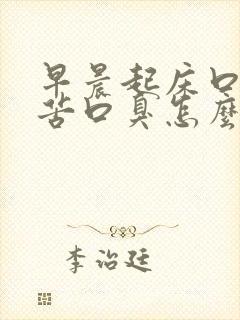 早晨起床口
苦口臭怎麼
李治廷